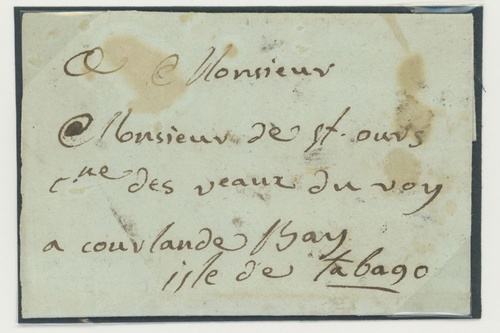 A Monsieur
Monsieur de St. ours
cne des veaux du roy
a courlande Bay
isle de tabago